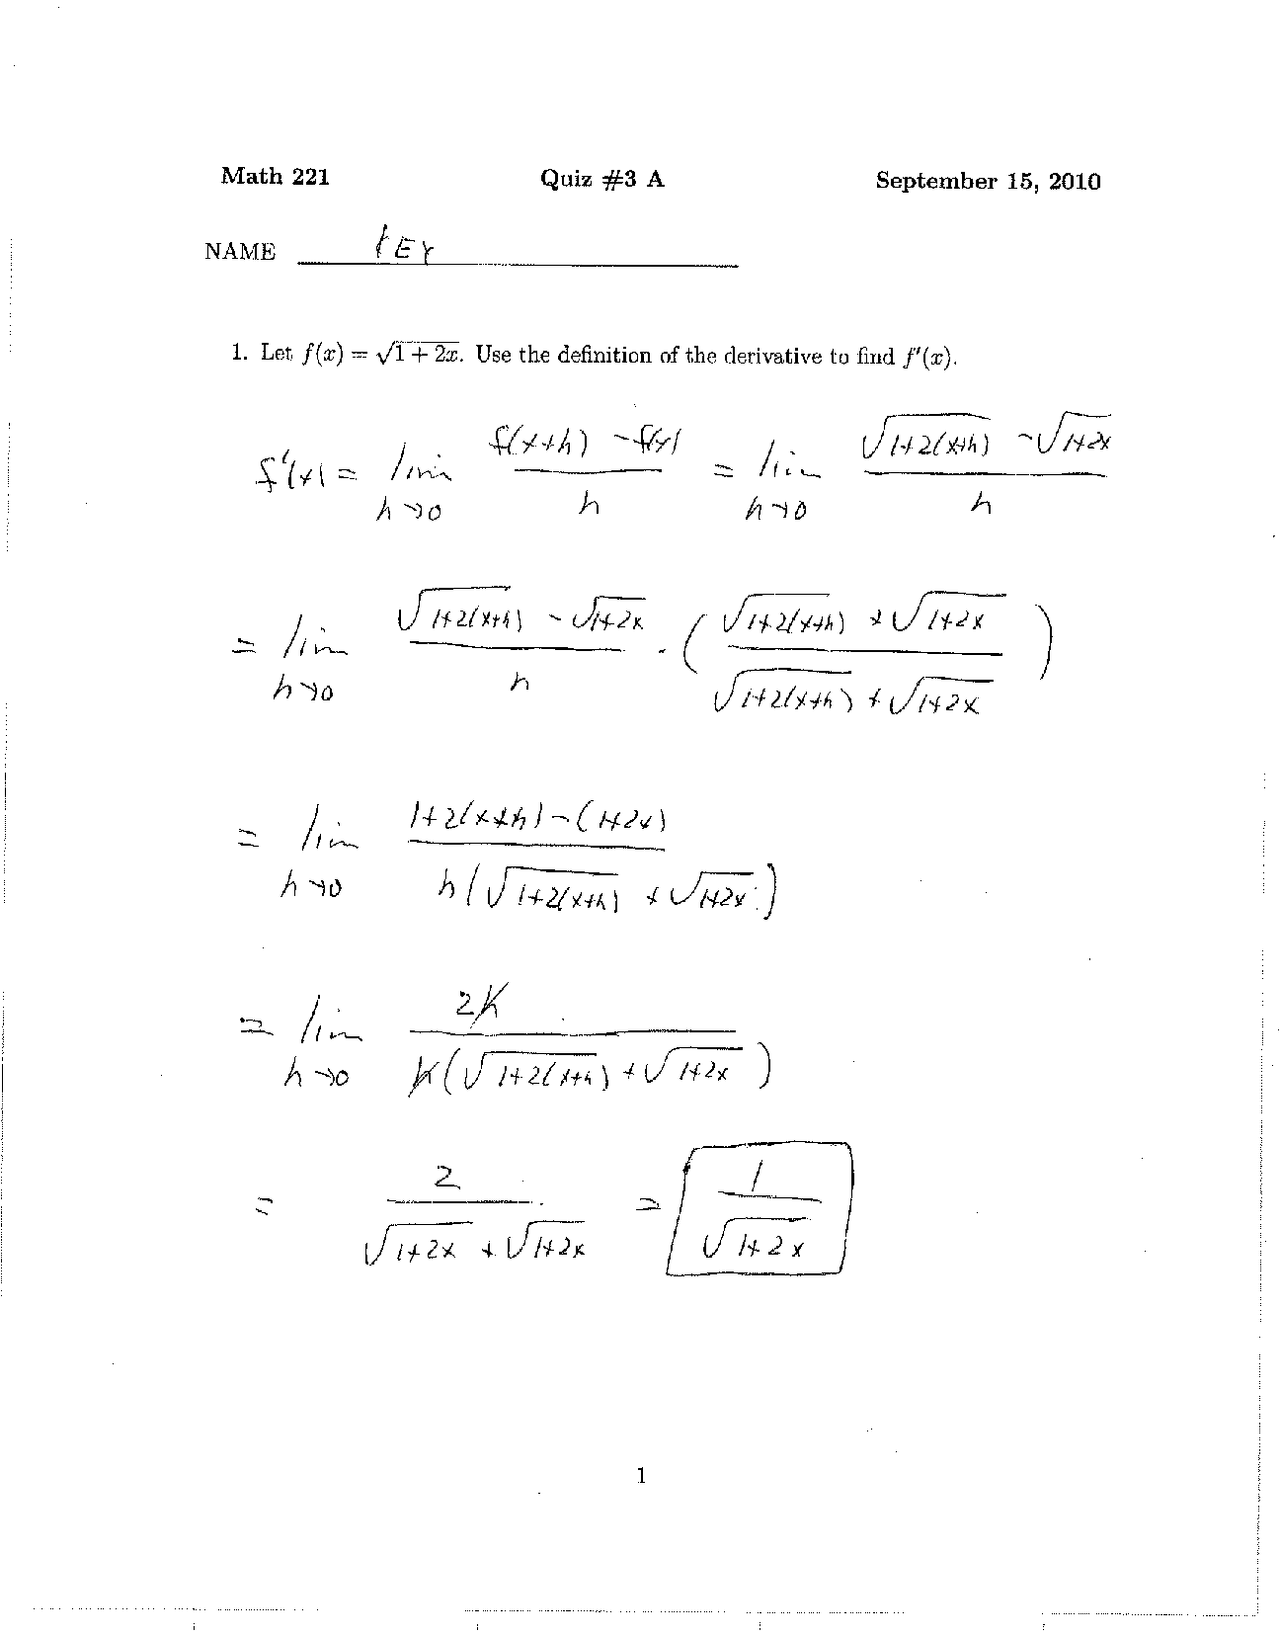 Math 221 Quiz #3 A September 15, 2010
NAME KEY
1. Let f(x) = √(1 + 2x). Use the definition of the derivative to find f′(x).
f′(x) = lim h→0 (f(x+h) − f(x))/h = lim h→0 (√(1+2(x+h)) − √(1+2x))/h
= lim h→0 (√(1+2(x+h)) − √(1+2x))/h · ((√(1+2(x+h)) + √(1+2x))/(√(1+2(x+h)) + √(1+2x)))
= lim h→0 (1+2(x+h) − (1+2x))/(h(√(1+2(x+h)) + √(1+2x)))
= lim h→0 2h/(h(√(1+2(x+h)) + √(1+2x)))
= 2/(√(1+2x) + √(1+2x)) = 1/√(1+2x)
1